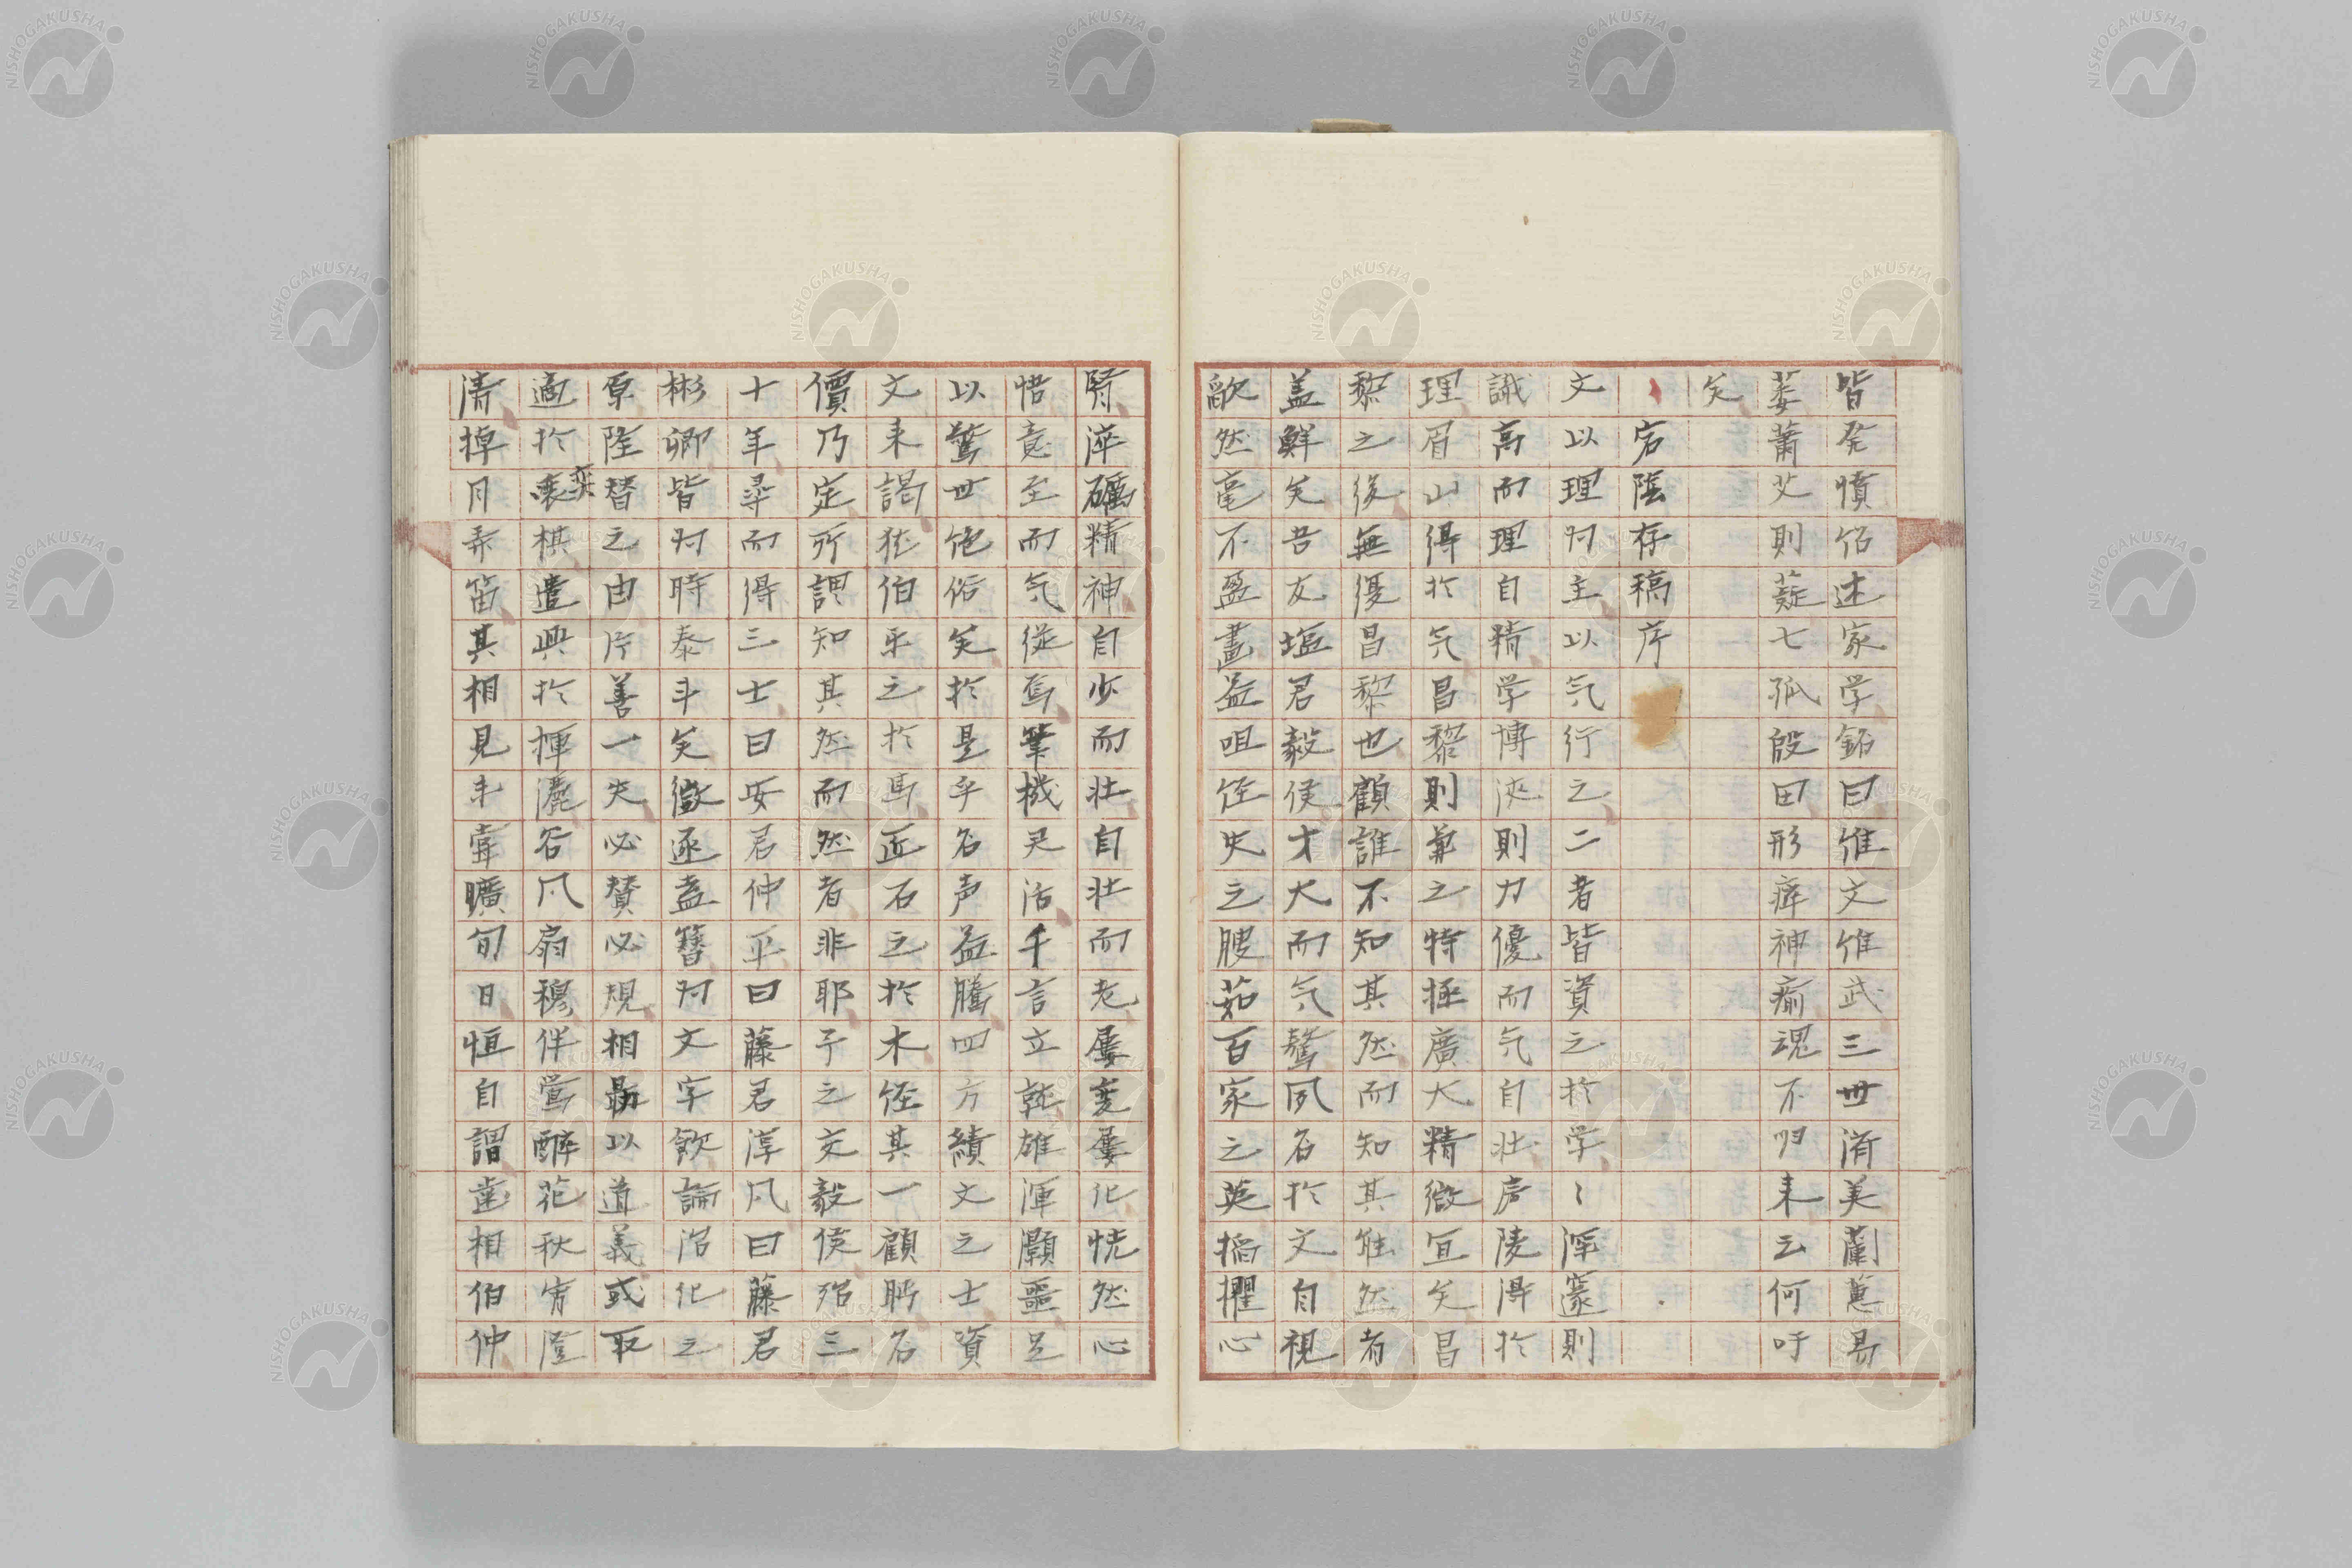 皆発憤紹述家学銘曰惟文惟武三世済美蘭蕙易
萎蕭艾則薿七孤殷田形瘁神瘉魂不帰来云何吁
矣
宕陰存稿序
文以理為主以気行之二者皆資之於学〻深邃則
識高而理自精学博浹則力優而気自壮廬陵得於
理眉山得於気昌黎則兼之特極広大精微宜矣昌
黎之後無復昌黎也顧誰不知其然而知其能然者
盖鮮矣吾友塩君毅侯才大而気驁夙名於文自視
歉然竜不盈畫益咀経史之腴茹百家之英搯擢心
腎淬礪精神自少而壮自壮而老屡変屡化恍然心
悟意至而気従焉筆機霊活千言立就雄渾灝噩足
以驚世絶俗矣於是乎名声益騰四方績文之士資
文来謁猶伯楽之於馬匠石之於木経其一顧眄名
價乃定所謂知其然而然者非耶予之交毅侯殆三
十年尋而得三士曰安君仲平曰藤君淳風曰藤君
彬卿皆為時泰斗矣徴逐盍簪為文字飲論治化之
原隆替之由片善一失必賛必規相勗以道義或取
適於奕棋遣興於揮灑谷風扇穆伴鶯酔花秋宵澄
清掉月弄笛其相見未嘗曠旬日恒自謂歯相伯仲
NISHOGAKUSHA